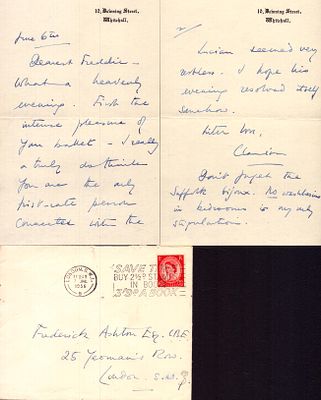 12, Downing Street,
Whitehall.
June 6th
Dearest Freddie —
What a heavenly
evening. First the
intense pleasure of
your ballet — I really
a truly do think
You are the only
first-rate person
connected with the
12, Downing Street,
Whitehall.
Lucian seemed very
restless. I hope his
evening resolved itself
somehow.
Clarissa
Don't forget the
Suffolk bijou. No washbasins
in bedrooms is my only
stipulation.
LONDON. S.W.1
1956
SAVE TIME
BUY 2½D STAMPS
IN BOOKS
3/9 A BOOK
Frederick Ashton Esq. CBE
25 Yeoman's Row.
London. S.W.3.